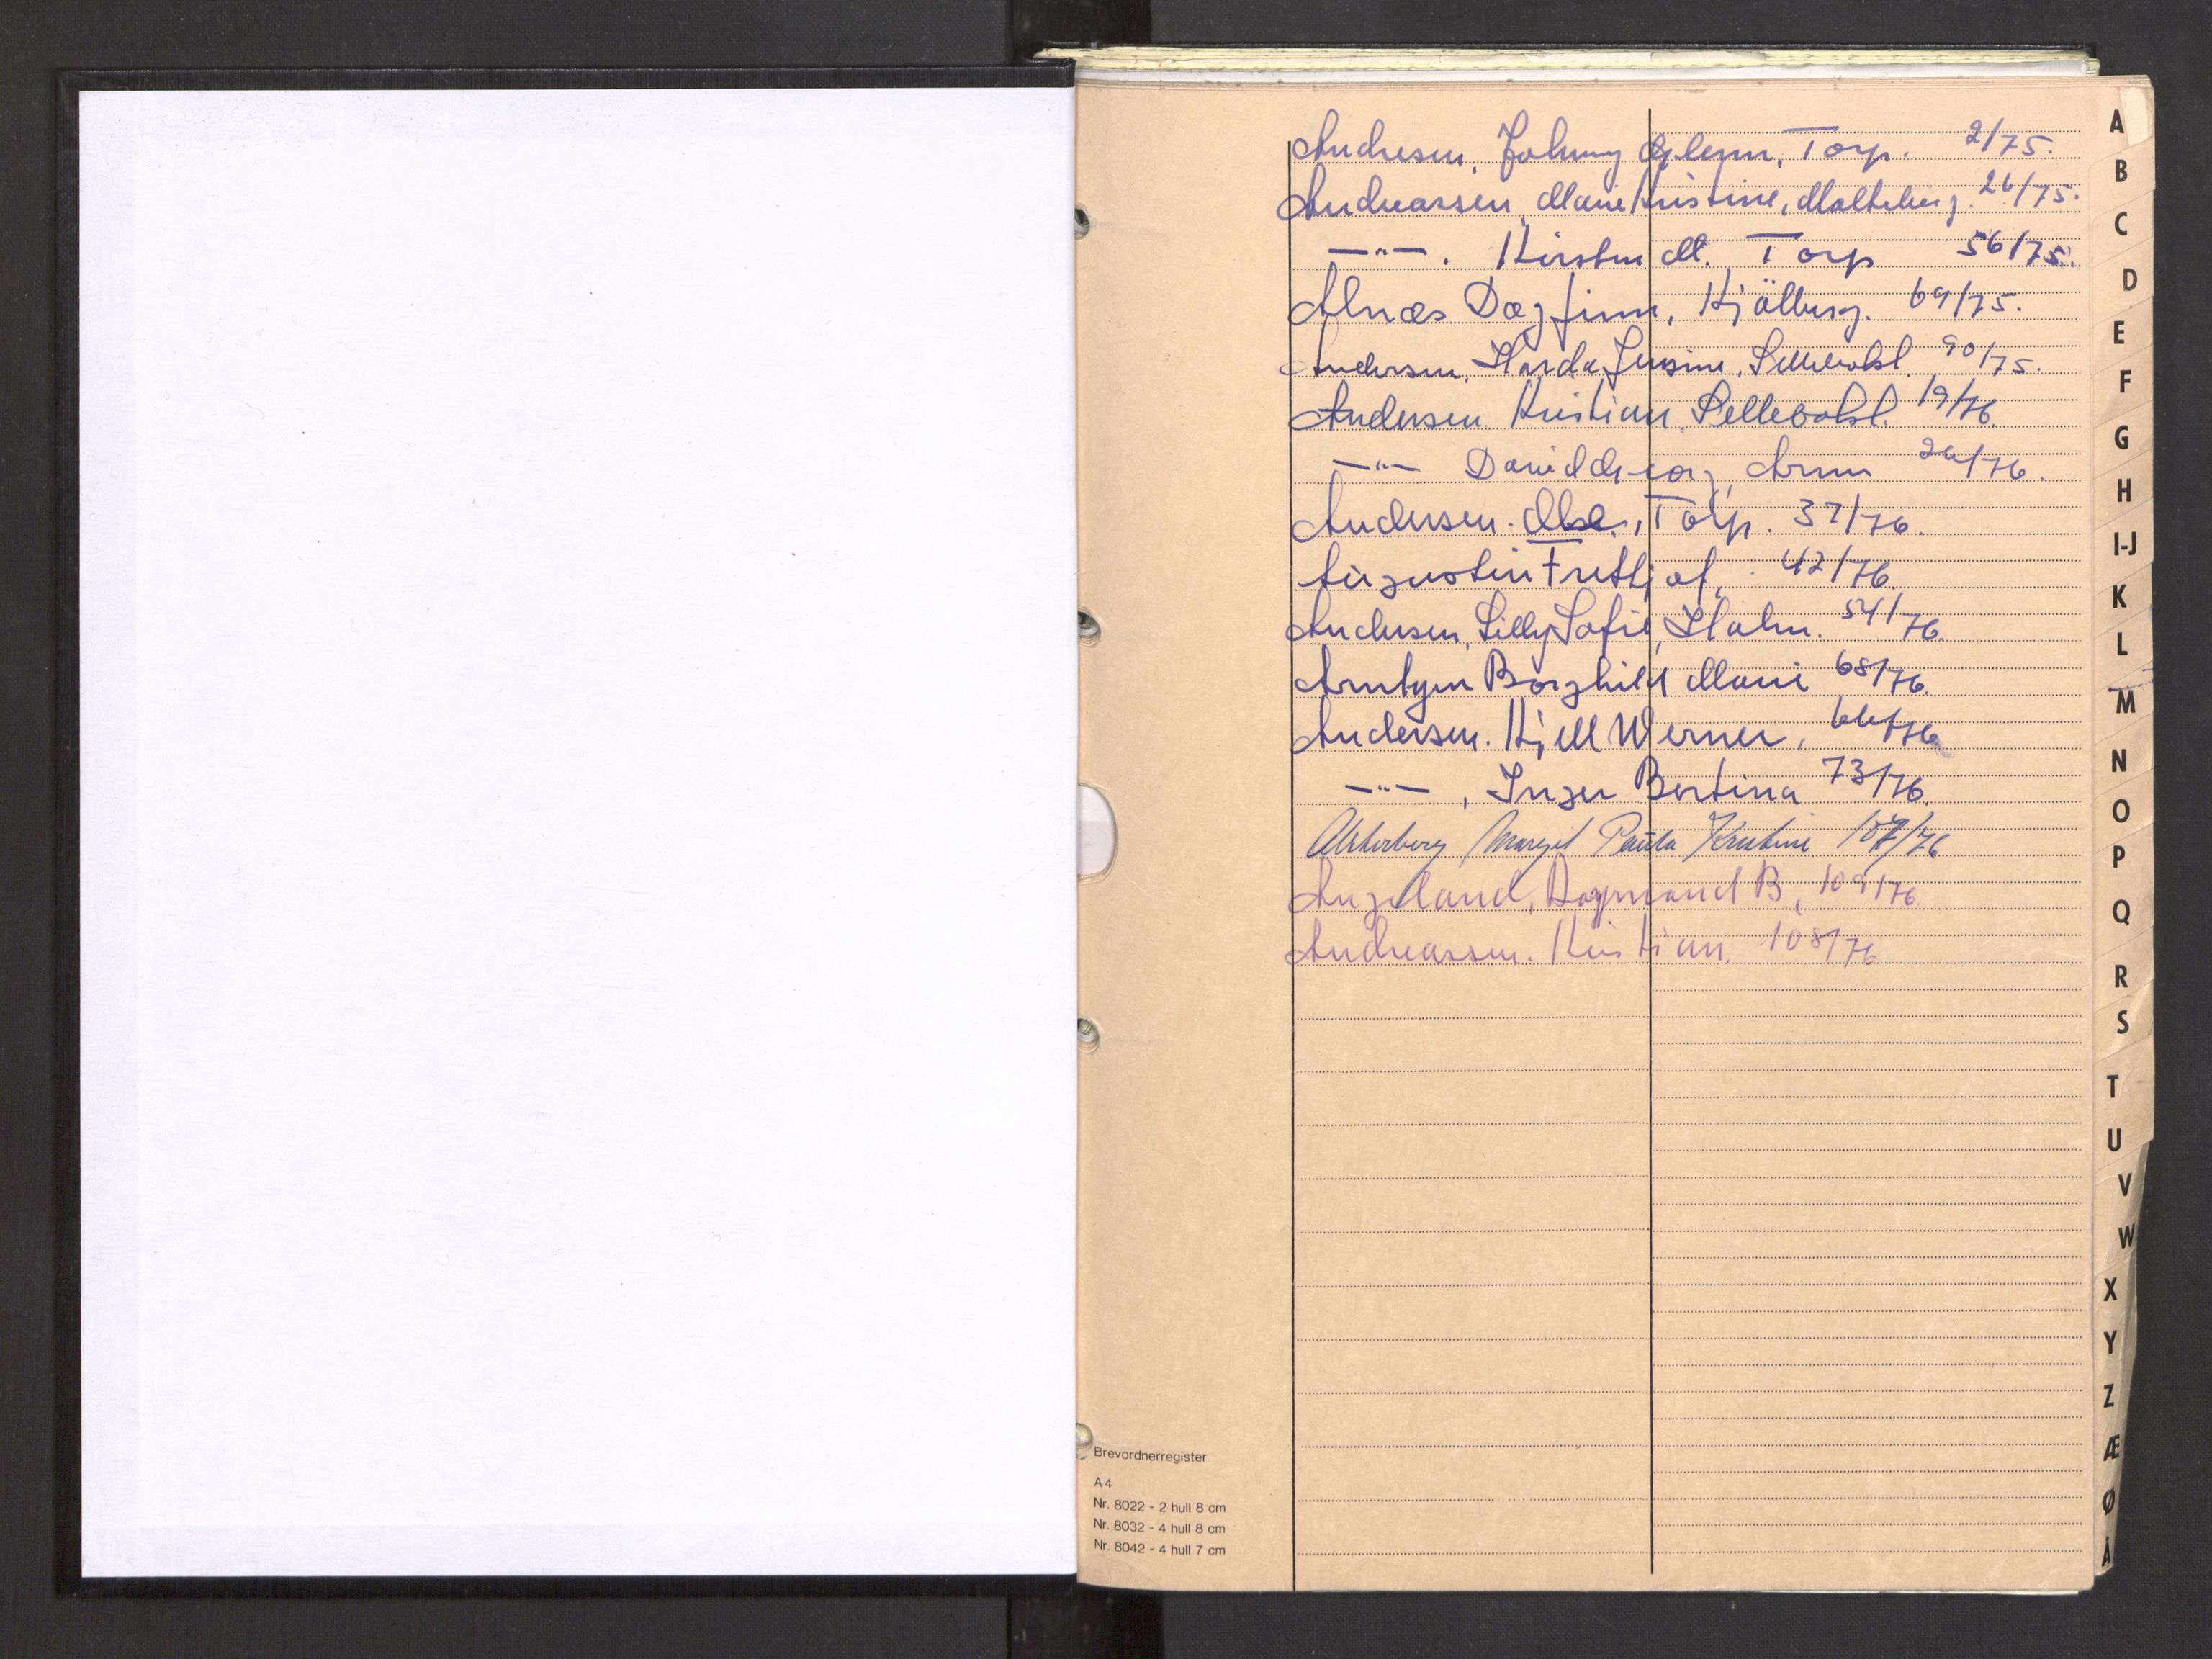 Andresen, Johnny Glenn, Torp. 2/75.
Andreassen, Marie Kristine, Molteberg. 26/75.
—"— . Kirsten M. Torp 56/75.
Alnæs Dagfinn, Kjölberg. 69/75.
Andersen, Harda Jensine, Lillevold. 90/75.
Andersen Kristian, Sellevold. 19/76.
—"— David Georg, Arum 26/76.
Andersen. Else, Torp. 37/76.
Augustin Frithjof, 42/76.
Andersen, Lilly Sofie, Holm. 54/76.
Arntzen Borghild Marie 68/76.
Andersen. Kjell Werner, 66/76
—"— , Inger Bertina 73/76.
Akterberg Margit Paula Kristine 107/76
Angeland, Raymond B, 109/76
Andreassen. Kristian. 108/76
A
B
C
D
E
F
G
H
I-J
K
L
M
N
O
P
Q
R
S
T
U
V
W
X
Y
Z
Æ
Ø
Å
Brevordnerregister
A 4
Nr. 8022 - 2 hull 8 cm
Nr. 8032 - 4 hull 8 cm
Nr. 8042 - 4 hull 7 cm